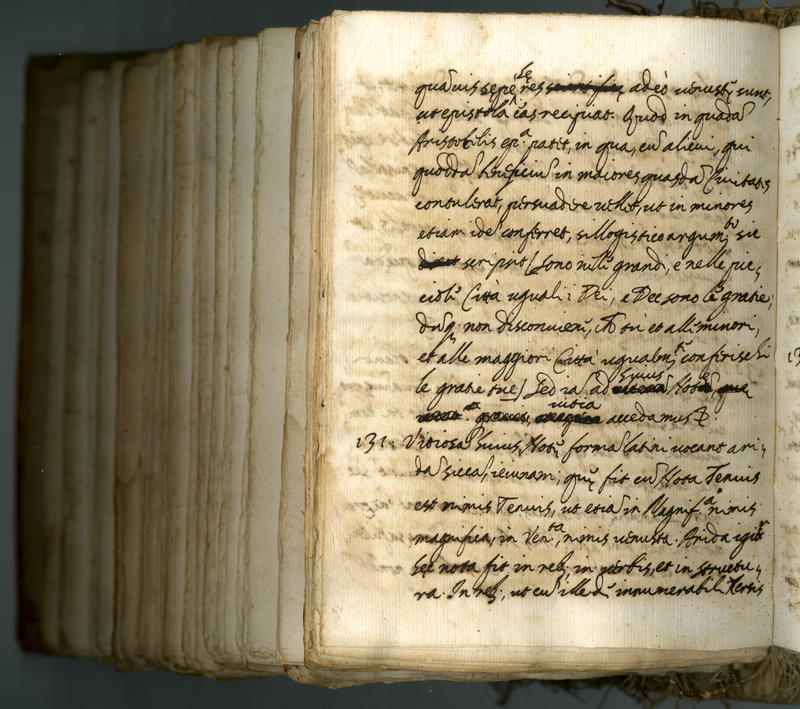 quãuis sępè se res adeò uenustę sunt,
ut epistolã eas recipiat. Quod in quadã
Aristotelis ep.ª patet, in qua, cũ alicui, qui
quoddã beneficiũ in maiores quasdã Ciuitates
contulerat, persuadere uellet, ut in minores
etiam idẽ conferret, sillogistico argumᵗᵒ sic
scripsit [sono nelle grandi, e nelle pic,
ciole Città uguali i Dei, e Dee sono le gratie;
non disconuiene, et alli minori,
et alle maggiori Città ugualmᵗᵉ conferischi
le gratie tue] Sed iã ad huius Notę
uitia accedamus
131. Vitiosã huius Notę formã latini uocant ari,
dã siccã, ieiunam; quę fit cũ Nota Tenuis
est nimis Tenuis, ut etiã in Magnif.ª nimis
magnifica, in Ven.ᵗᵃ, nimis uenusta. Arida igiᵗʳ
hęc nota fit in reb; in uerbis, et in structu,
ra. In reb;, ut cũ ille dẽ innumerabili Xersis